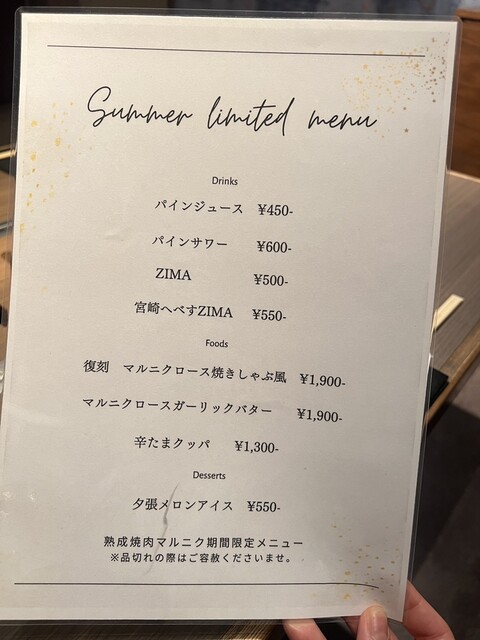 Summer limited menu
Drinks
パインジュース ¥450-
パインサワー ¥600-
ZIMA ¥500-
宮崎へべすZIMA ¥550-
Foods
復刻 マルニクロース焼きしゃぶ風 ¥1,900-
マルニクロースガーリックバター ¥1,900-
辛たまクッパ ¥1,300-
Desserts
夕張メロンアイス ¥550-
熟成焼肉マルニク期間限定メニュー
※品切れの際はご容赦くださいませ。